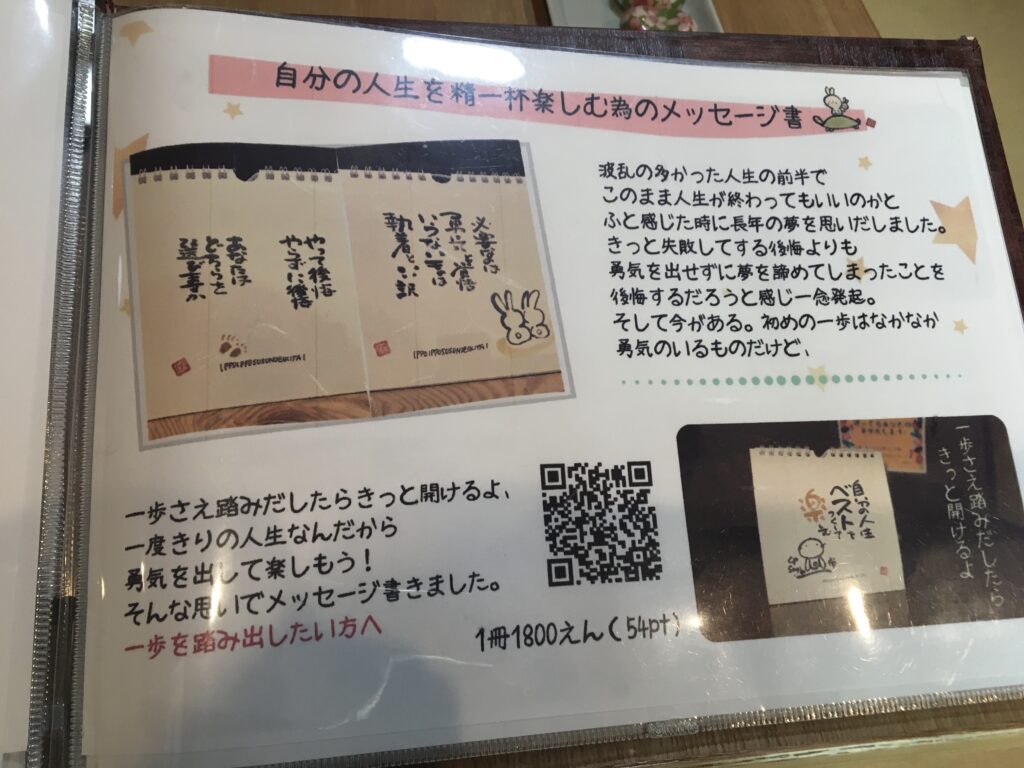 自分の人生を精一杯楽しむ為のメッセージ書
やって後悔
やらずに後悔
あなたは
どちらを
選びますか
必要なのは
勇気と覚悟
いらないのは
執着と言い訳
波乱の多かった人生の前半で
このまま人生が終わってもいいのかと
ふと感じた時に長年の夢を思いだしました。
きっと失敗してする後悔よりも
勇気を出せずに夢を諦めてしまったことを
後悔するだろうと感じ一念発起。
そして今がある。初めの一歩はなかなか
勇気のいるものだけど、
一歩さえ踏みだしたらきっと開けるよ、
一度きりの人生なんだから
勇気を出して楽しもう!
そんな思いでメッセージ書きました。
一歩を踏み出したい方へ
1冊1800えん(54pt)
自分の人生
ベストを
楽
一歩さえ踏みだしたら
きっと開けるよ